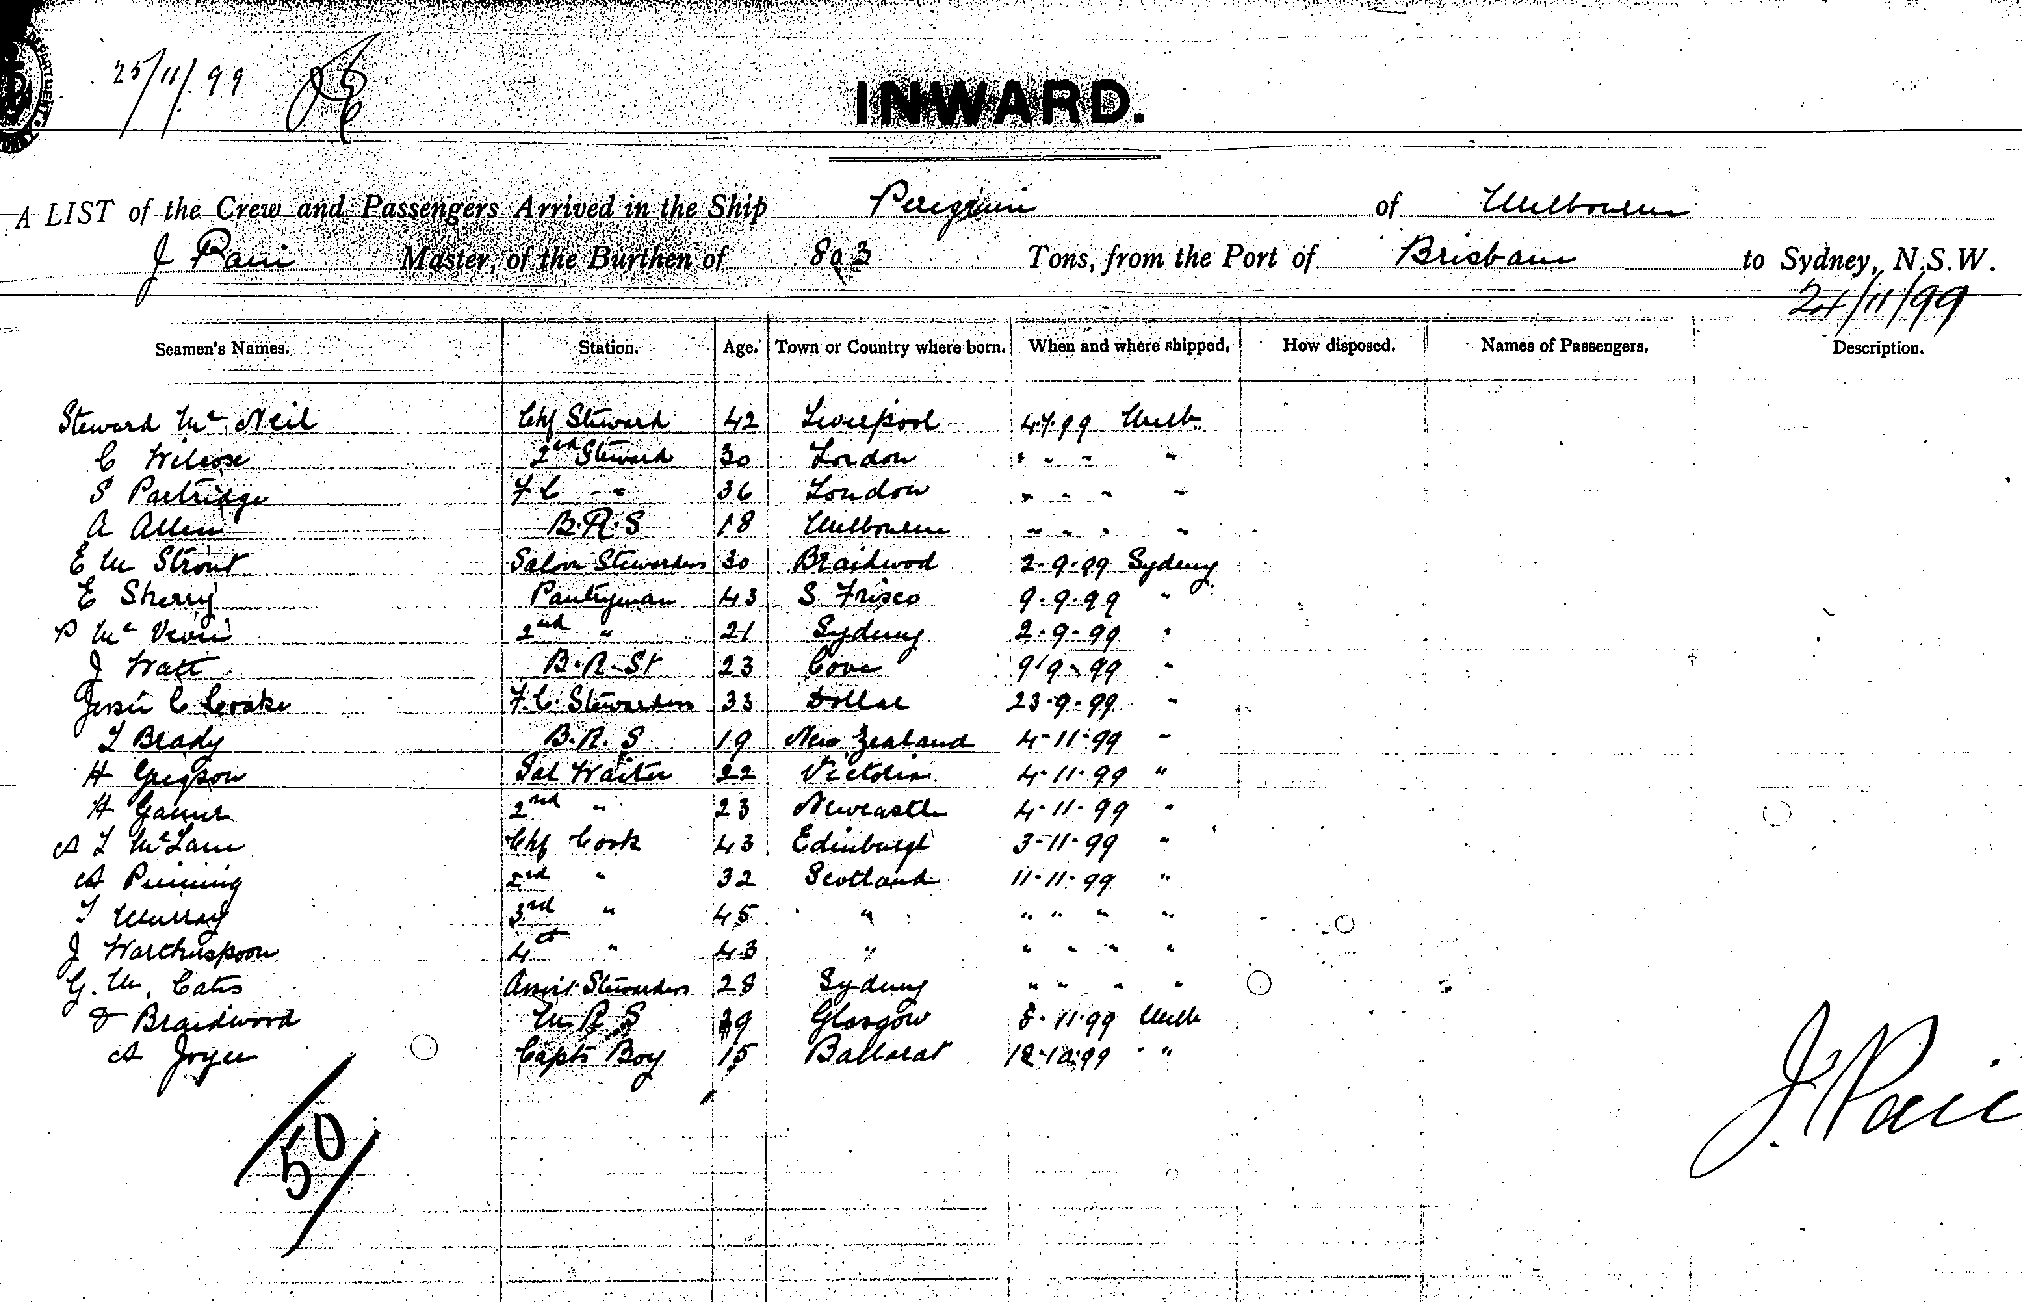 25/11/99
INWARD.
A LIST of the Crew and Passengers Arrived in the Ship Peregrine of Melbourne
J Pain Master, of the Burthen of 803 Tons, from the Port of Brisbane to Sydney, N.S.W.
24/11/99
Seamen's Names. Station. Age. Town or Country where born. When and where shipped. How disposed. Names of Passengers. Description.
Steward Mc Neil Chf Steward 42 Liverpool 4.7.99 Melb
C Wilcox 2nd Steward 30 London " " " "
S Partridge F C " 36 London " " " "
A Allen B.R.S 18 Melbourne " " " "
E M Strout Saloon Stewardess 30 Braidwood 2-9-99 Sydney
E Sherry Pantryman 43 S Frisco 9.9.99 "
P Mc 2nd " 21 Sydney 2-9-99 "
J Watt B.R.St 23 Cove 9-9-99 "
Jessie C Cooke F.C. Stewardess 33 Dollar 23-9-99 "
T Brady B.R.S 19 New Zealand 4-11-99 "
H Gregson Sal Waiter 22 Victoria 4-11-99 "
H 2nd " 23 Newcastle 4-11-99 "
A T McLane Chf Cook 43 Edinburgh 3-11-99 "
A 2nd " 32 Scotland 11-11-99 "
T Murray 3rd " 45 " " " " "
J 4th " 43 " " " " "
G. M. Cates Assist Stewardess 28 Sydney " " " "
Braidwood M R S 39 Glasgow 8-11-99 Melb
A Joyce Capts Boy 15 Ballarat 12-10-99 " "
/50/
J. Pain